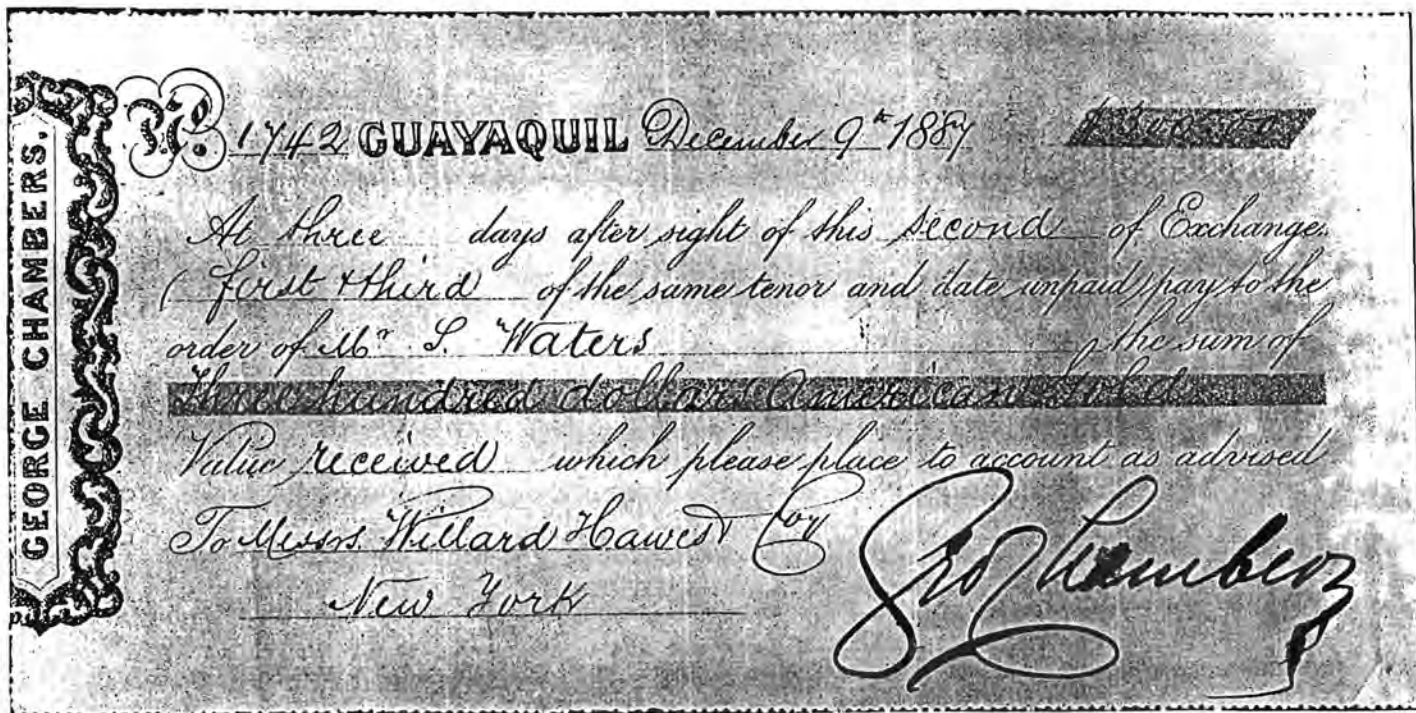 GEORGE CHAMBERS.
No. 1742 GUAYAQUIL December 9th 1887 $300.00
At three days after sight of this second of Exchange
(first & third of the same tenor and date unpaid) pay to the
order of Mr S. Waters the sum of
Three hundred dollars American Gold
Value received which please place to account as advised
To Messrs Willard Hawes & Coy
New York
Geo Chambers